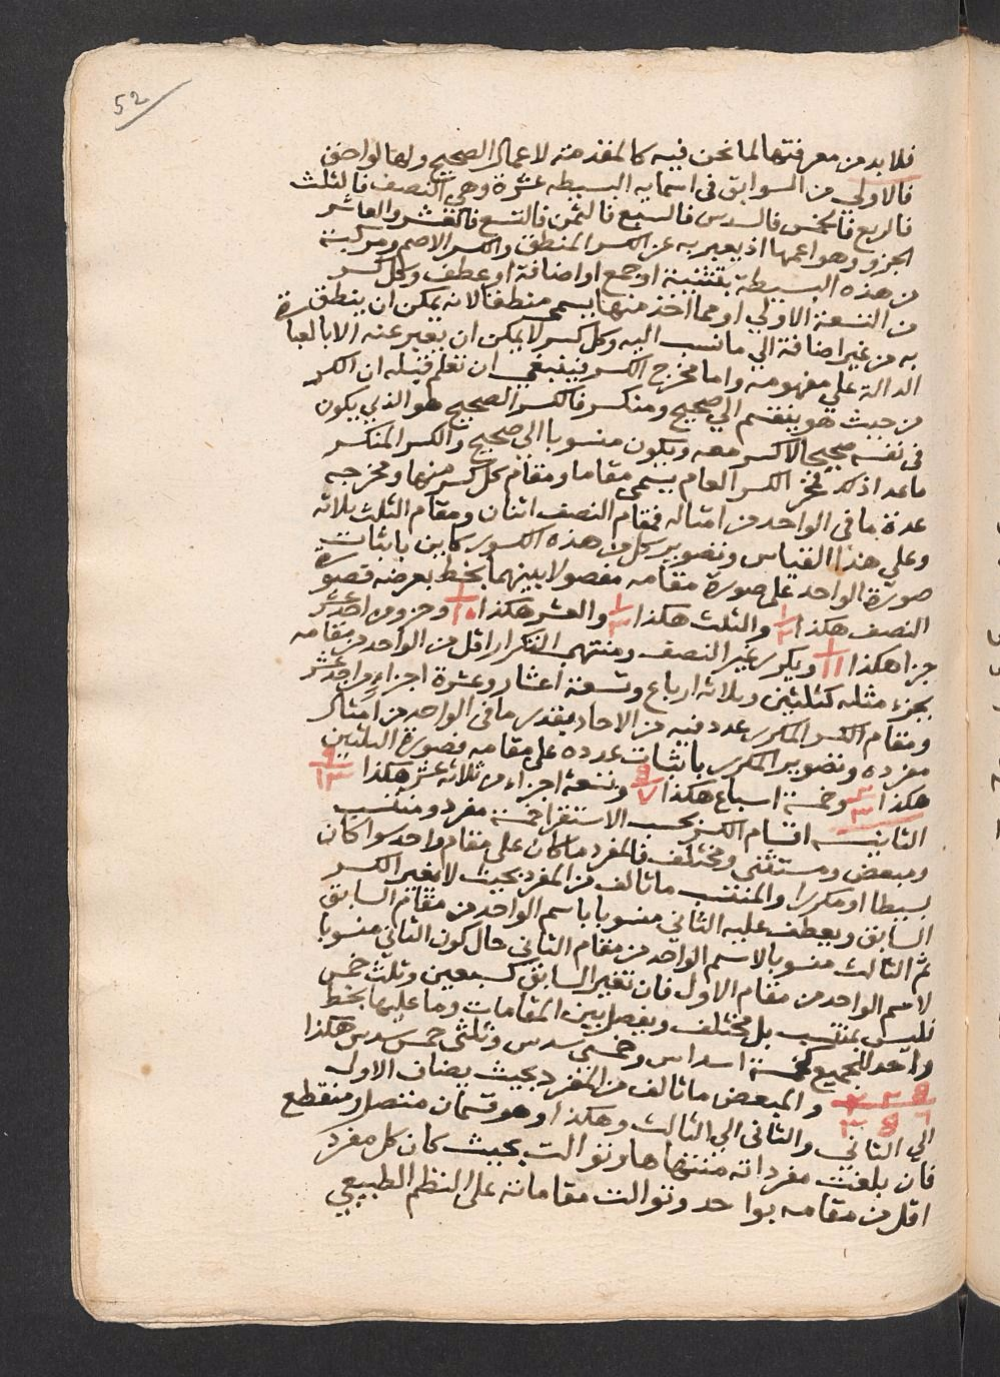 52
فلا بد من معرفتها لما نحن فيه كالمقدمة لاعمال الصحيح ولها لواحق
فالاولي من السوابق في اسمايه البسيطه عشرة وهي النصف فالثلث
فالربع فالخمس فالسدس فالسبع فالثمن فالتسع فالعشر والعاشر
الجزو وهو اعمها اذ يعبر به عن الكسر المنطق والكسر الاصم ومركبة
من هذه البسيطة بتثنية او جمع او اضافة او عطف وكل كسر
من التسعة الاولي او مما اخذ منها يسمي منطقا لانه يمكن ان ينطق
به من غير اضافة الي ما نسب اليه وكل كسر لا يمكن ان يعبر عنه الا بالعبارة
الدالة علي مفهومه واما مخرج الكسر فينبغي ان تعلم قبله ان الكسر
من حيث هو ينقسم الي صحيح ومنكسر فالكسر الصحيح هو الذي يكون
في نفسه صحيحا لا كسر معه ويكون منسوبا الي صحيح والكسر المنكسر
ما عدا ذلك فمخرج الكسر العام يسمي مقاما ومقام كل كسر منها ومخرجه
عدة ما في الواحد من امثاله فمقام النصف اثنان ومقام الثلث ثلاثه
وعلي هذا القياس وتصوير كل من هذه الكسور كاين باثبات
صورة الواحد علي صورة مقامه مفصولا بينهما بخط بعرضه فصورة
النصف هكذا ١/٢ والثلث هكذا ١/٣ والعشر هكذا ١/١٠ وجزو من احد عشر
جزا هكذا ١/١١ ويكرر غير النصف ومنتهي التكرار اقل من الواحد من مقامه
بجزء مثله كثلثين وثلاثه ارباع وتسعة اعشار وعشرة اجزاء من احد عشر
ومقام الكسر المكرر عدد فيه من الاحاد بقدر ما في الواحد من امثال
مفرده وتصوير المكرر باثبات عدده علي مقامه فصورة الثلثين
هكذا ٢/٣ وخمسة اسباع هكذا ٥/٧ وتسعة اجزاء من ثلاثه عشر هكذا ٩/١٣
الثانية اقسام الكسر بحسب الاستقرا خمسة مفرد ومنتسب
ومبعض ومستثني ومختلف فالمفرد ما كان علي مقام واحد سوا كان
بسيطا او مكررا والمنتسب ما تالف من المفرد بحيث لا يغير الكسر
السابق ويعطف عليه الثاني منسوبا باسم الواحد من مقام السابق
ثم الثالث منسوبا لاسم الواحد من مقام الثاني حال كون الثاني منسوبا
لاسم الواحد من مقام الاول فان تغير السابق كسبعين وثلث خمس
فليس بمنتسب بل مختلف ويفصل بين المقامات وما عليها بخط
واحد للجميع كخمسة اسداس وخمسي سدس وثلثي خمس سدس هكذا
٥ ٢ ٢ / ٦ ٥ ٣ والمبعض ما تالف من المفرد بحيث يضاف الاول
الي الثاني والثاني الي الثالث وهكذا وهو قسمان متصل ومنقطع
فان بلغت مفرداته منتهاها وتوالت بحيث كان كل مفرد
اقل من مقامه بواحد وتوالت مقاماته علي النظم الطبيعي